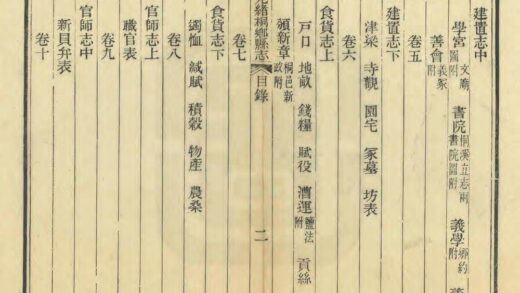 建置志中
學宮 文廟圖附 書院 桐溪立志兩書院圖附 義學 鄉約附
善會 義冢附
卷五
建置志下
津梁 寺觀 園宅 冢墓 坊表
卷六
食貨志上
戶口 地畝 錢糧 賦役 漕運 鹽法附 貢絲
新章 桐邑新政附
緒桐鄉縣志 目錄 二
卷七
食貨志下
蠲恤 減賦 積穀 物產 農桑
卷八
官師志上
職官表
卷九
官師志中
新員弁表
卷十